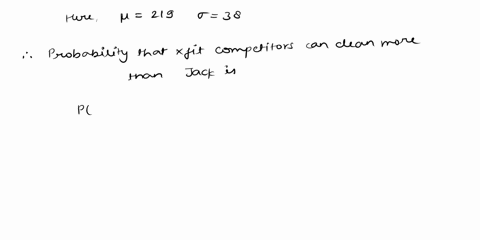 Here, μ = 219 σ = 38
∴ Probability that xfit competitors can clean more
than Jack is
P(